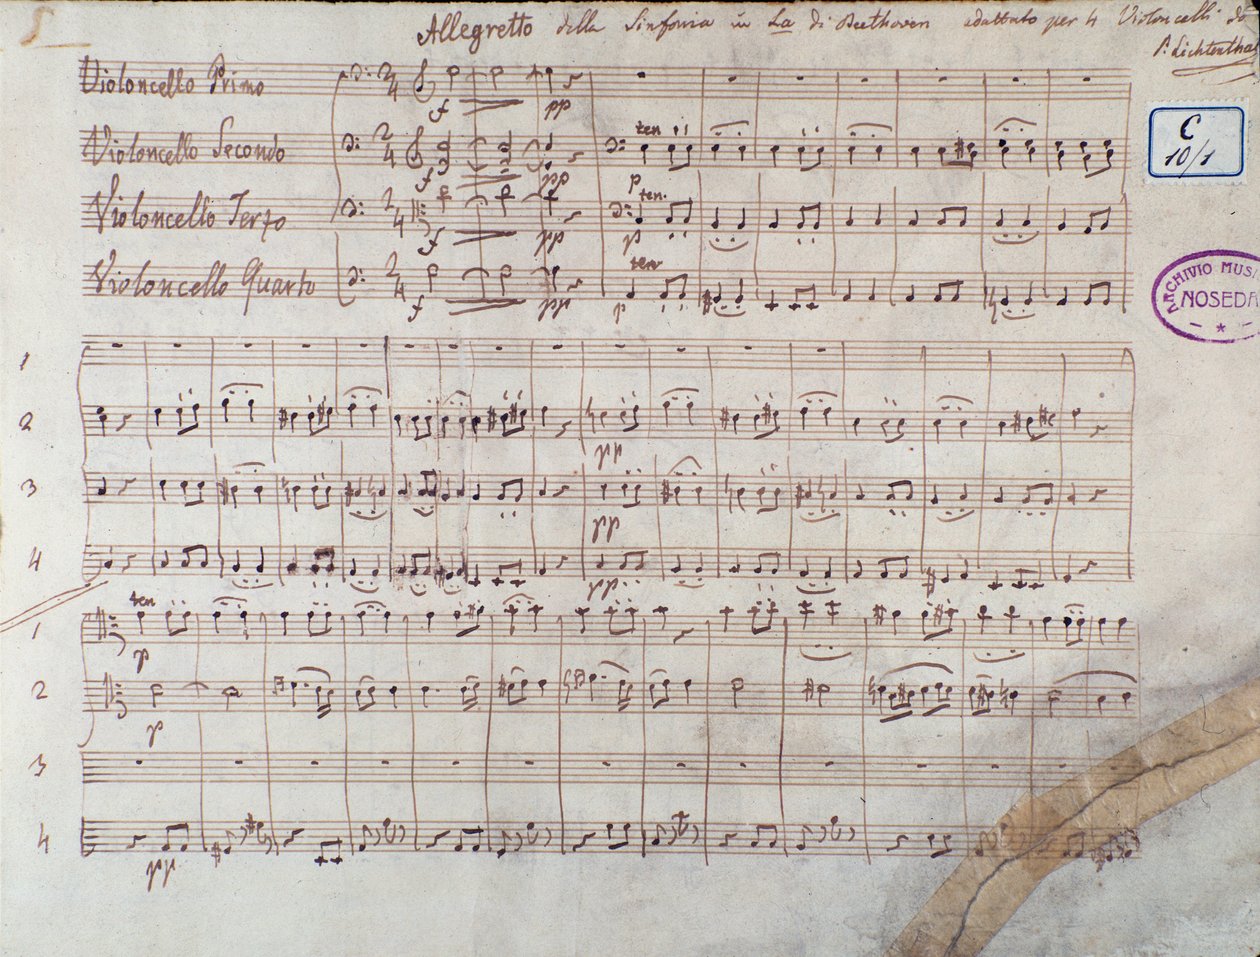 Allegretto della Sinfonia in La di Beethoven adattato per 4 Violoncelli da
P. Lichtentha
Violoncello Primo
2/4 f pp
C
10/1
Violoncello Secondo
2/4 f pp ten p
Violoncello Terzo
2/4 f pp ten. p
ARCHIVIO MUSI
NOSEDA
Violoncello Quarto
2/4 f pp ten p
1
2
pp
3
pp
4
pp
1
ten
p
2
p
3
4
pp